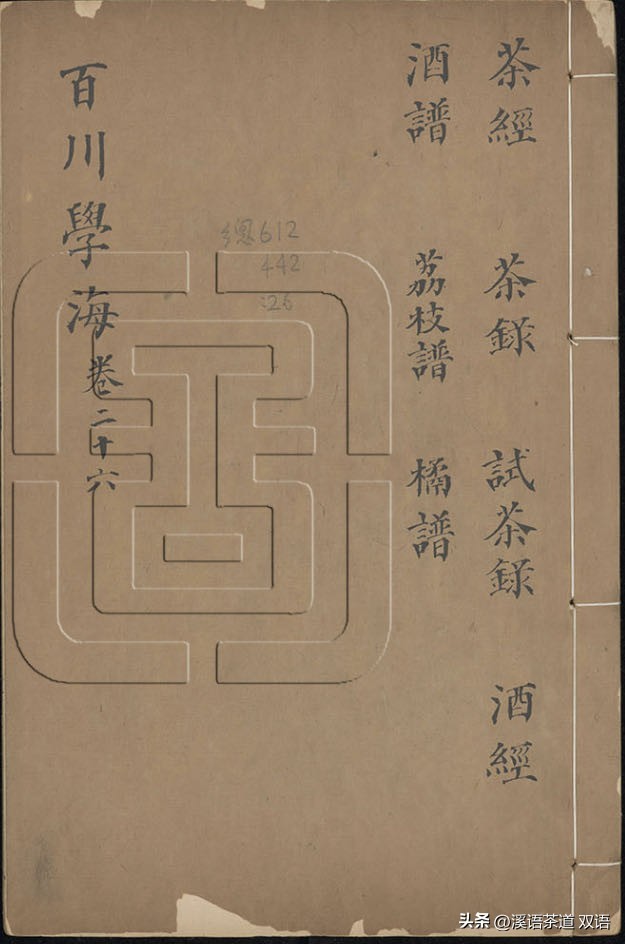 茶經 茶錄 試茶錄 酒經
酒譜 荔枝譜 橘譜
總612
442
:26
百川學海 卷二十六
头条 @溪语茶道 双语